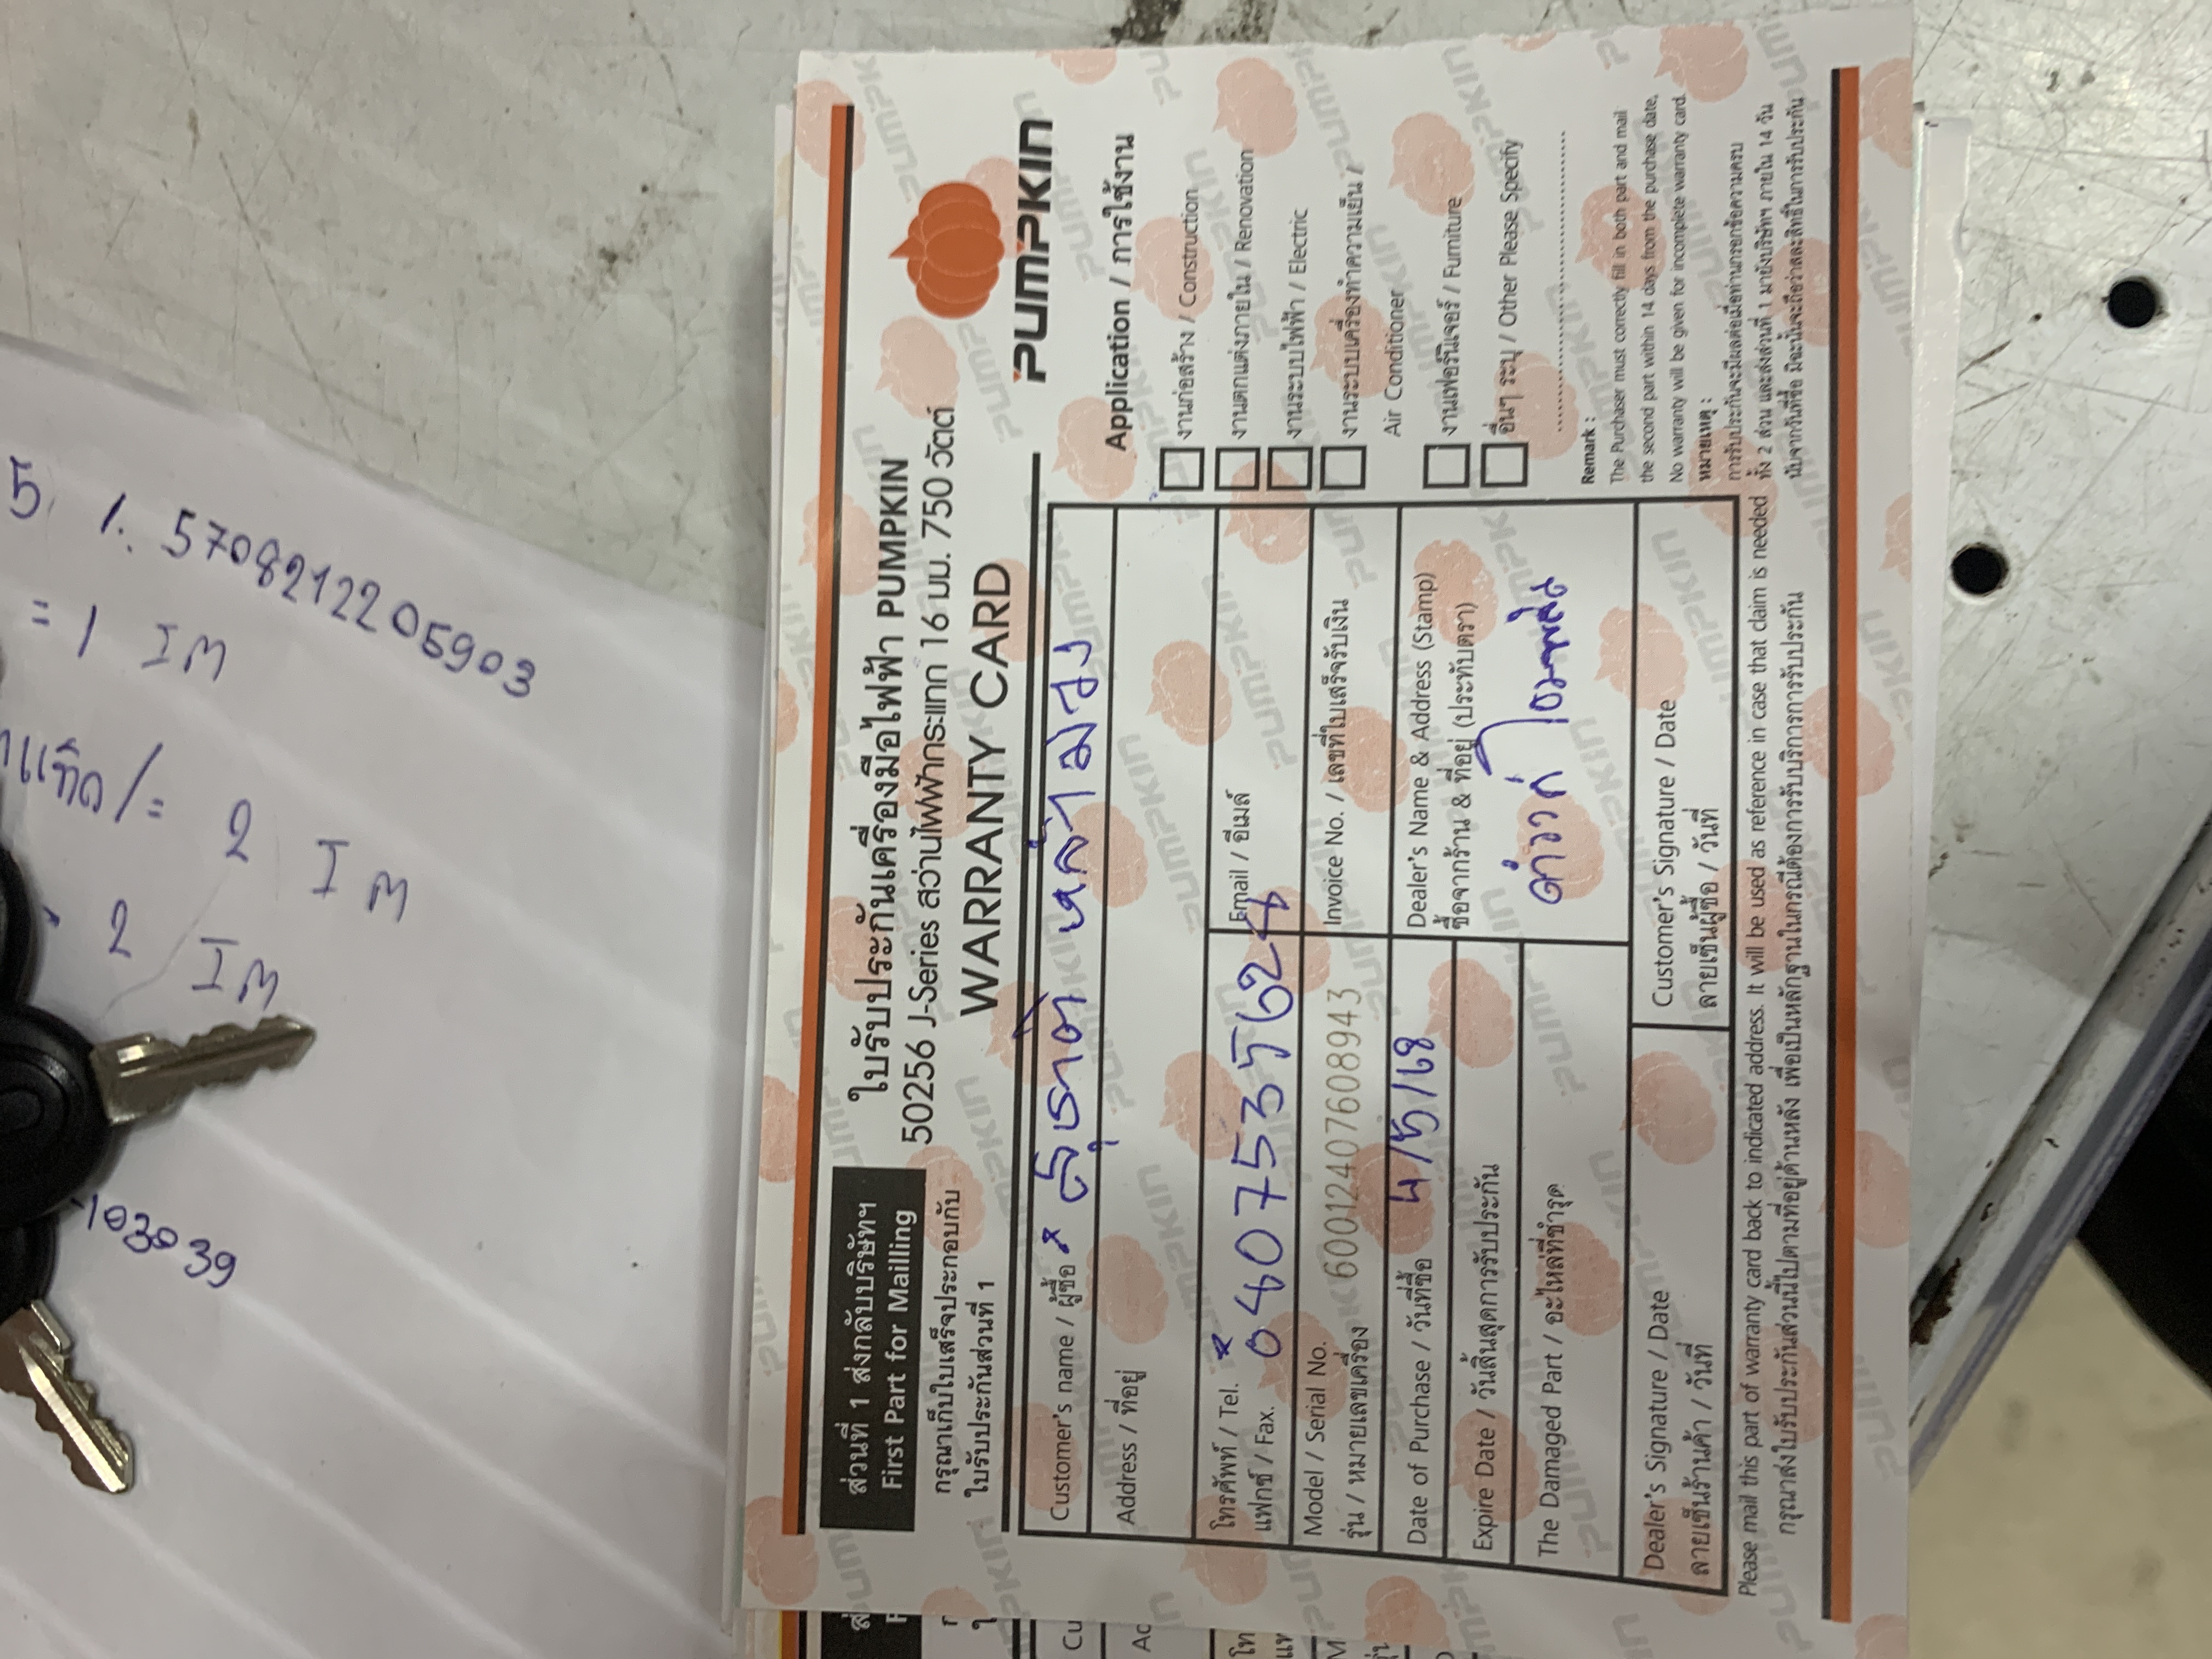 ส่วนที่ 1 ส่งกลับบริษัทฯ
First Part for Mailling
กรุณาเก็บใบเสร็จประกอบกับ
ใบรับประกันส่วนที่ 1
ใบรับประกันเครื่องมือไฟฟ้า PUMPKIN
50256 J-Series สว่านไฟฟ้ากระแทก 16 มม. 750 วัตต์
WARRANTY CARD
PUMPKIN
Customer's name / ผู้ซื้อ
Address / ที่อยู่
โทรศัพท์ / Tel.
แฟกซ์ / Fax. 0407535624
Email / อีเมล์
Model / Serial No.
รุ่น / หมายเลขเครื่อง PK60012407608943
Invoice No. / เลขที่ใบเสร็จรับเงิน
Date of Purchase / วันที่ซื้อ 4/5/68
Dealer's Name & Address (Stamp)
ซื้อจากร้าน & ที่อยู่ (ประทับตรา)
Expire Date / วันสิ้นสุดการรับประกัน
The Damaged Part / อะไหล่ที่ชำรุด
Dealer's Signature / Date
ลายเซ็นร้านค้า / วันที่
Customer's Signature / Date
ลายเซ็นผู้ซื้อ / วันที่
Application / การใช้งาน
งานก่อสร้าง / Construction
งานตกแต่งภายใน / Renovation
งานระบบไฟฟ้า / Electric
งานระบบเครื่องทำความเย็น /
Air Conditioner
งานเฟอร์นิเจอร์ / Furniture
อื่นๆ ระบุ / Other Please Specify
Remark :
The Purchaser must correctly fill in both part and mail
the second part within 14 days from the purchase date.
No warranty will be given for incomplete warranty card.
หมายเหตุ :
การรับประกันจะมีผลต่อเมื่อท่านกรอกข้อความครบ
ทั้ง 2 ส่วน และส่งส่วนที่ 1 มายังบริษัทฯ ภายใน 14 วัน
นับจากวันที่ซื้อ มิฉะนั้นจะถือว่าสละสิทธิ์ในการรับประกัน
Please mail this part of warranty card back to indicated address. It will be used as reference in case that claim is needed
กรุณาส่งใบรับประกันส่วนนี้ไปตามที่อยู่ด้านหลัง เพื่อเป็นหลักฐานในกรณีต้องการรับบริการการรับประกัน
5 1. 5708212205903
= 1 IM
/= 2 IM
2 IM
103039